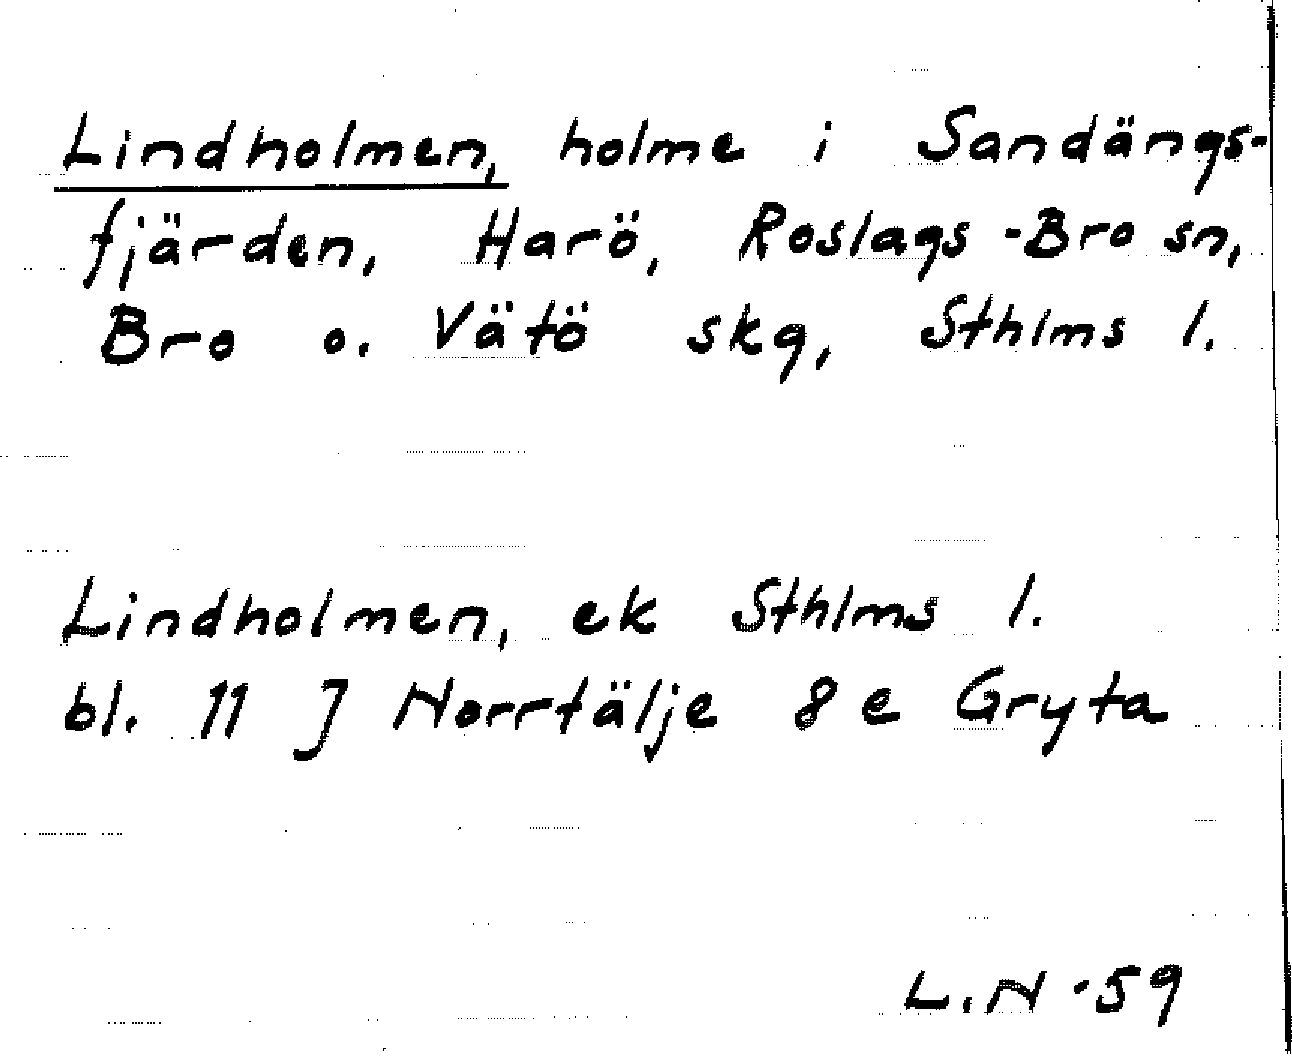 Lindholmen, holme i Sandängs-
fjärden, Harö, Roslags-Bro sn,
Bro o. Vätö skg, Sthlms l.
Lindholmen, ek Sthlms l.
bl. 11 J Norrtälje 8e Gryta
L.N -59